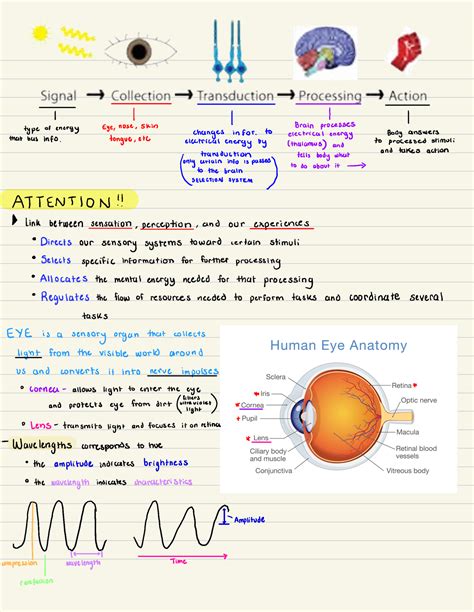 Signal → Collection → Transduction → Processing → Action
type of energy that has info.
Eye, nose, skin
tongue, etc
changes infor. to
electrical energy by
transduction
(only certain info is passes
to the brain
SELECTION SYSTEM)
Brain processes
electrical energy
(thalamus) and
tells body what
to do about it
Body answers
to processed stimuli
and takes action
ATTENTION!!
Link between sensation, perception, and our experiences
• Directs our sensory systems toward certain stimuli
• Selects specific information for further processing
• Allocates the mental energy needed for that processing
• Regulates the flow of resources needed to perform tasks and coordinate several
tasks
EYE is a sensory organ that collects
light from the visible world around
us and converts it into nerve impulses
• Cornea - allows light to enter the eye
and protects eye from dirt (filters ultraviolet light)
• Lens - transmits light and focuses it on retina
- Wavelengths corresponds to hue
• the amplitude indicates brightness
• the wavelength indicates characteristics
Human Eye Anatomy
Sclera
Iris
Cornea
Pupil
Lens
Ciliary body
and muscle
Conjunctiva
Retina
Optic nerve
Macula
Retinal blood
vessels
Vitreous body
compression
rarefaction
wavelength
Amplitude
Time